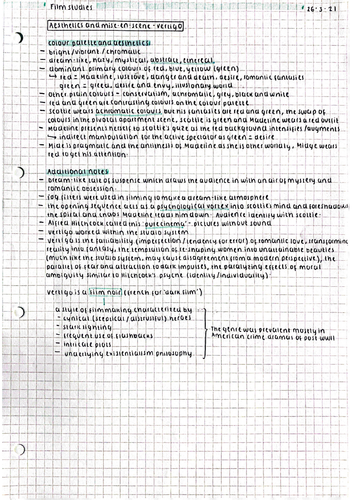 Film studies
16-3-21
Aesthetics and mise-en-scene - vertigo
colour palette and aesthetics
- bright/vibrant/chromatic
- dream-like, hazy, mystical, abstract, ethereal
- dominant primary colours of red, blue, yellow (green)
↳ red = Madeline, lust/love, danger and death, desire, romantic fantasies
green = greed, desire and envy, illusionary world
- Other plain colours - conservatism, monochromatic, grey, black and white
- red and green are contrasting colours on the colour palette
- Scottie wears achromatic colours but his fantasies are red and green, the swap of
colours in the pivotal apartment scene, Scottie is green and Madeline wears a red outfit
- Madeline presents herself to Scottie's gaze as the red background intensifies/augments
↳ indirect manipulation for the active spectator as green = desire
- Midge is pragmatic and the antithesis of Madeline as she is other worldly, Midge wears
red to get his attention.
Additional notes
- Dream-like state of suspence which draws the audience in with an air of mystery and
romantic obsession
- fog filters were used in filming to make a dream-like atmosphere
- the opening sequence acts as a psychological vortex into scotties mind and foreshadows
the spiral and chaos Madeline leads him down. Audience identify with scottie.
- Alfred Hitchcock called this 'pure cinema' - pictures without sound
- vertigo worked within the studio system
- vertigo is the fallibility (imperfection/tendency for error) of romantic love, transforming
reality into fantasy, the compulsion of re-shaping women into unattainable beauties
(much like the studio system, may cause disagreement from a modern perspective), the
parallel of fear and attraction to dark impulses, the paralysing effects of moral
ambiguity similar to Hitchcock's psyche (identity/individuality).
vertigo is a film noir (french for 'dark film')
a style of filmmaking characterised by
- cynical (sceptical/distrustful) heroes
- stark lighting
- frequent use of flashbacks
- intricate plots
- underlying existentialism philosophy
The genre was prevalent mostly in
American crime dramas of post WWII